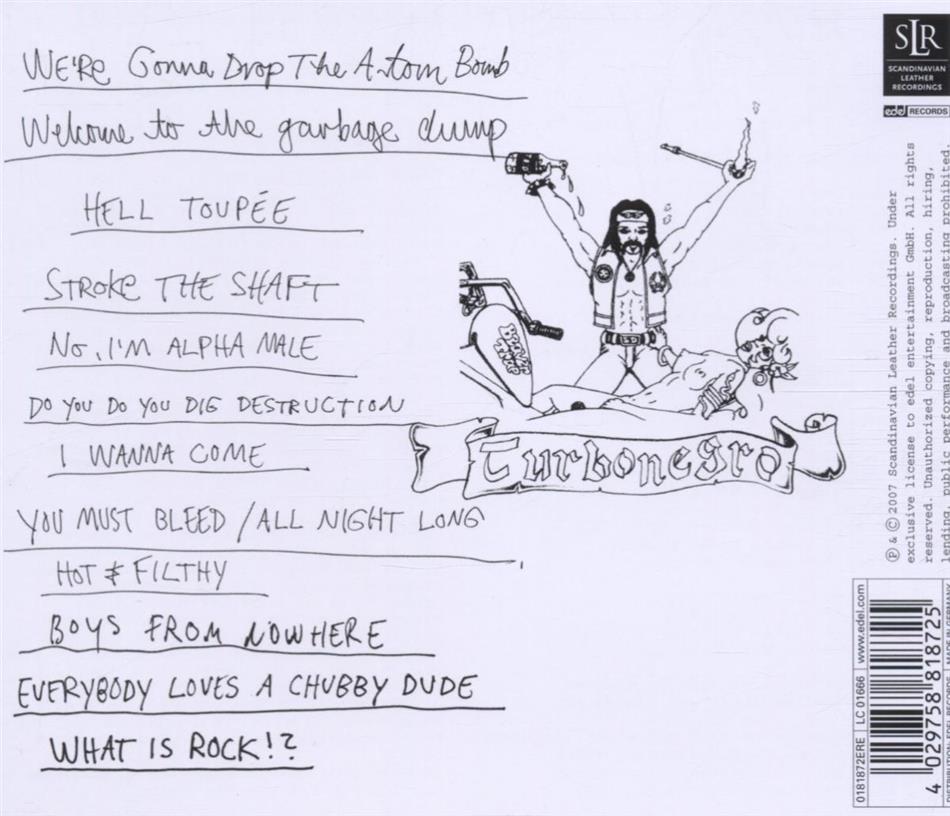 WE'RE Gonna Drop The A-tom Bomb
Welcome to the garbage dump
HELL TOUPÉE
STROKE THE SHAFT
NO, I'M ALPHA MALE
DO YOU DO YOU DIG DESTRUCTION
I WANNA COME
YOU MUST BLEED / ALL NIGHT LONG
HOT & FILTHY
BOYS FROM NOWHERE
EVERYBODY LOVES A CHUBBY DUDE
WHAT IS ROCK!?
Turbonegro
SLR
SCANDINAVIAN
LEATHER
RECORDINGS
edel RECORDS
℗ & © 2007 Scandinavian Leather Recordings. Under
exclusive license to edel entertainment GmbH. All rights
reserved. Unauthorized copying, reproduction, hiring,
lending, public performance and broadcasting prohibited.
0181872ERE LC 01666 www.edel.com
4 029758 818725
DISTRIBUTION: EDEL RECORDS MADE IN GERMANY